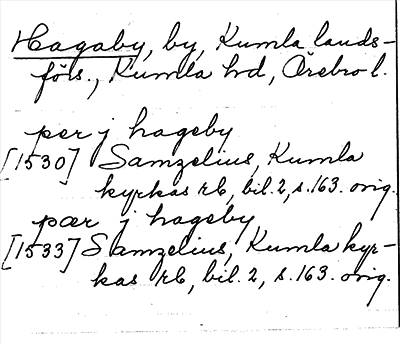 Hagaby, by, Kumla lands-
förs., Kumla hd, Örebro l.
per j hageby
[1530] Samzelius, Kumla
kyrkas rb, bil. 2, s. 163. orig.
pær j hageby
[1533] Samzelius, Kumla kyr-
kas rb, bil. 2, s. 163. orig.